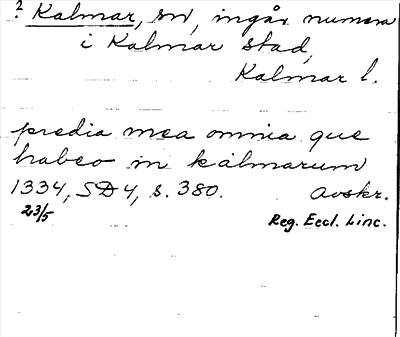 ? Kalmar, sn, ingår numera
i Kalmar stad,
Kalmar l.
predia mea omnia que
habeo in kalmarum
1334, SD4, s. 380. Avskr.
23/5 Reg. Eccl. Linc.